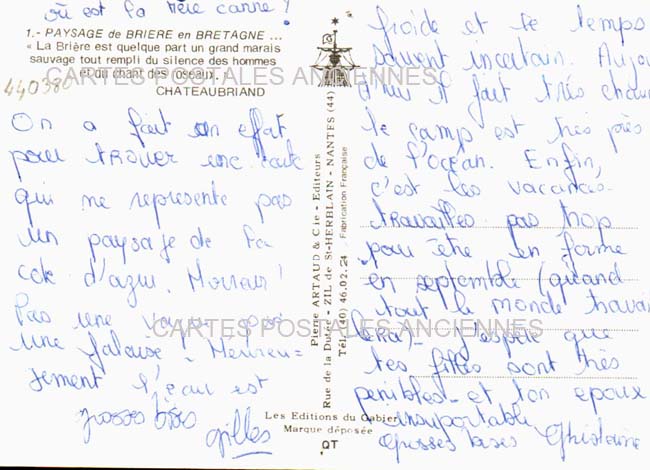 où est la Mère canne!
1.- PAYSAGE de BRIERE en BRETAGNE ...
« La Brière est quelque part un grand marais
sauvage tout rempli du silence des hommes
et du chant des roseaux.
CHATEAUBRIAND
CARTES POSTALES ANCIENNES
440380
On a fait un effort
pour trouver une carte
qui ne represente pas
un paysage de la
cote d'azur.
Pas une vague, pas
une falaise - Heureu=
sement l'eau est
grosses bises
gilles
Pierre ARTAUD & Cie - Editeurs
Rue de la Dutée - ZIL de St-HERBLAIN - NANTES (44)
Tél. (40) 46.02.24 Fabrication Française
Les Editions du Gabier
Marque déposée
QT
froide et le temps
souvent incertain. Aujou
d'hui il fait très chaud
le camp est très près
de l'océan. Enfin,
c'est les vacances.
travailles pas trop
pour être en forme
en septembre (quand
tout le monde travail
lera) - J'espère que
CARTES POSTALES ANCIENNES
tes filles sont très
penibles - et ton epoux
insupportable
Grosses bises Ghislaine